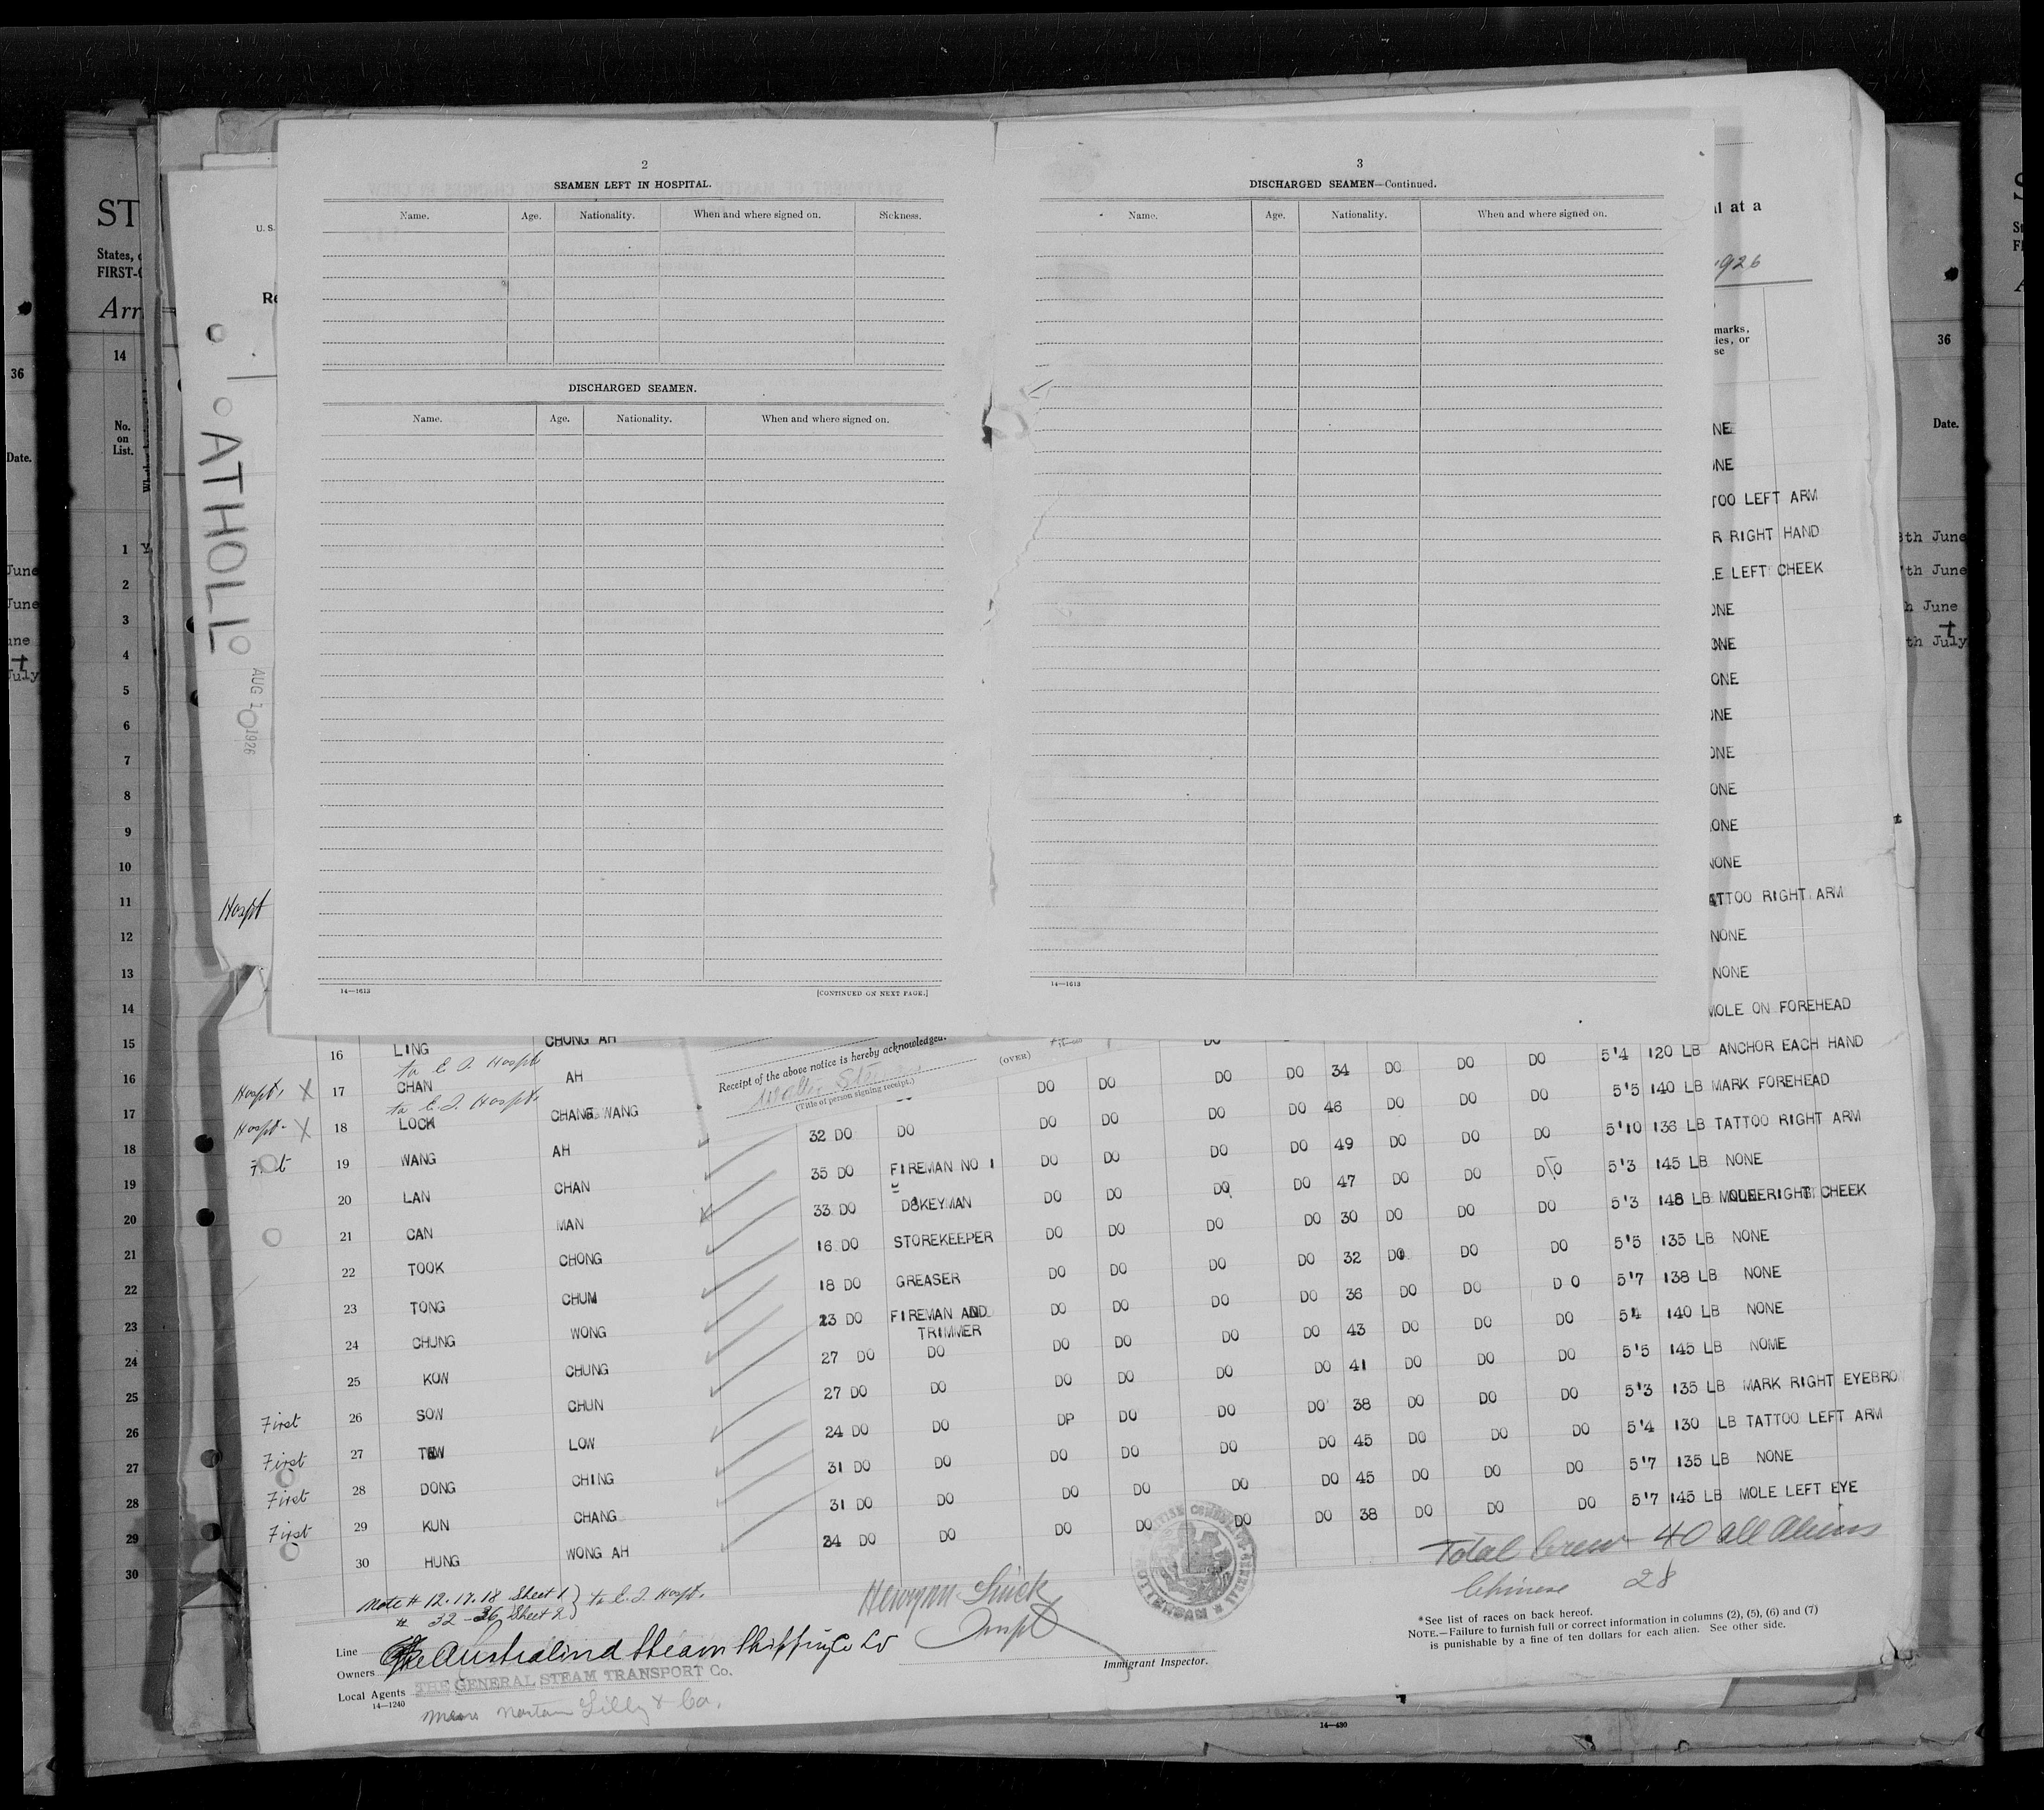 2
SEAMEN LEFT IN HOSPITAL.
Name. Age. Nationality. When and where signed on. Sickness.
DISCHARGED SEAMEN.
Name. Age. Nationality. When and where signed on.
14—1613
[CONTINUED ON NEXT PAGE.]
3
DISCHARGED SEAMEN—Continued.
Name. Age. Nationality. When and where signed on.
14—1613
ST
States,
FIRST-
Arr
14
No.
on
List.
36
Date.
June
June
July
U. S.
ATHOLL
AUG
1926
Hospt
1
2
3
4
5
6
7
8
9
10
11
12
13
14
15
16
17
18
19
20
21
22
23
24
25
26
27
28
29
30
al at a
1926
marks,
ies, or
se
NE
ONE
TOO LEFT ARM
R RIGHT HAND
LE LEFT CHEEK
ONE
ONE
ONE
ONE
ONE
ONE
ONE
NONE
ATTOO RIGHT ARM
NONE
NONE
MOLE ON FOREHEAD
36
Date.
8th June
7th June
h June
th July
Receipt of the above notice is hereby acknowledged.
(Title of person signing receipt.)
(OVER)
16 LING CHONG AH
to E. I. Hospt
Hospt. X 17 CHAN AH
to E. I. Hospt.
Hospt- X 18 LOCK CHANG WANG
19 WANG AH
20 LAN CHAN
21 CAN MAN
22 TOOK CHONG
23 TONG CHUM
24 CHUNG WONG
25 KOW CHUNG
First 26 SOW CHUN
First 27 TEW LOW
First 28 DONG CHING
First 29 KUN CHANG
30 HUNG WONG AH
DO DO 34 DO DO DO 5'4 120 LB ANCHOR EACH HAND
DO DO DO DO 46 DO DO DO 5'5 140 LB MARK FOREHEAD
32 DO DO DO DO DO DO 49 DO DO DO 5'10 136 LB TATTOO RIGHT ARM
35 DO FIREMAN NO 1 DO DO DO DO 47 DO DO DO 5'3 145 LB NONE
33 DO DOKEYMAN DO DO DO DO 30 DO DO DO 5'3 148 LB MOLE RIGHT CHEEK
16 DO STOREKEEPER DO DO DO DO 32 DO DO DO 5'5 135 LB NONE
18 DO GREASER DO DO DO DO 36 DO DO DO 5'7 138 LB NONE
23 DO FIREMAN AND
TRIMMER DO DO DO DO 43 DO DO DO 54 140 LB NONE
27 DO DO DO DO DO DO 41 DO DO DO 5'5 145 LB NOME
27 DO DO DO DO DO DO 38 DO DO DO 5'3 135 LB MARK RIGHT EYEBRO
24 DO DO DP DO DO DO 45 DO DO DO 5'4 130 LB TATTOO LEFT ARM
31 DO DO DO DO DO DO 45 DO DO DO 5'7 135 LB NONE
31 DO DO DO DO DO DO 38 DO DO DO 5'7 145 LB MOLE LEFT EYE
24 DO DO DO DO
Total Crew 40 all aliens
Chinese 28
Note # 12. 17. 18 Sheet 1 } to E. I. Hospt.
# 32 - 36 Sheet 2 }
ROTTERDAM
Inspt
Immigrant Inspector.
Line
Owners The Australind Steam Shipping Co Ld
Local Agents THE GENERAL STEAM TRANSPORT Co.
14—1240
Norton Lilly & Co.
*See list of races on back hereof.
NOTE.—Failure to furnish full or correct information in columns (2), (5), (6) and (7)
is punishable by a fine of ten dollars for each alien. See other side.
14—430